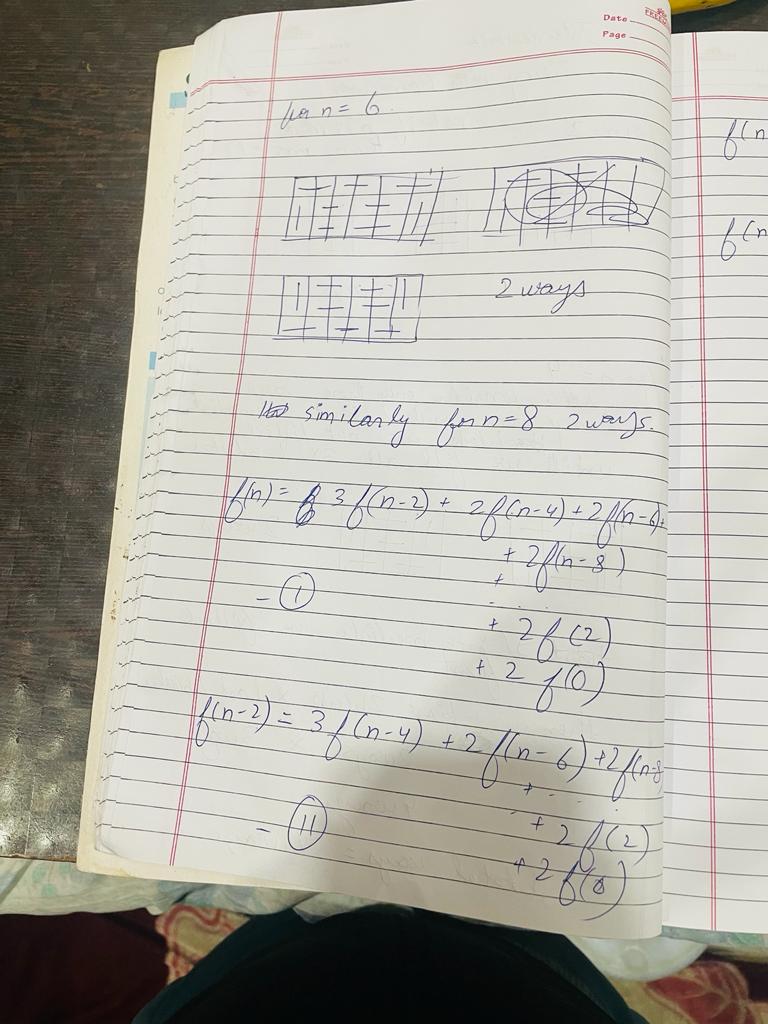 Date
Page
for n = 6
2 ways
similarly for n=8 2 ways.
f(n) = 3 f(n-2) + 2f(n-4) + 2f(n-6) +
+ 2f(n-8)
+
- I
+ 2f(2)
+ 2 f(0)
f(n-2) = 3 f(n-4) + 2f(n-6) + 2f(n-8
+ - - .
- II
+ 2 f(2)
+ 2 f(0)
f(n
f(n